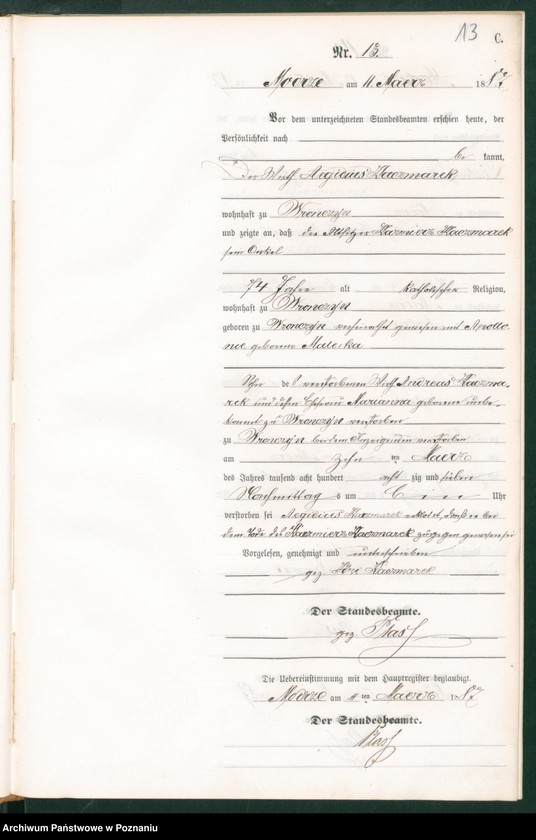 13
C.
Nr. 13.
Modrze am 11 Maerz 1887
Vor dem unterzeichneten Standesbeamten erschien heute, der
Persönlichkeit nach
be kannt,
Der Wirth Aegidius Kaczmarek
wohnhaft zu Wronczyn
und zeigte an, daß der Altsitzer Kazmierz Kaczmarek
sein Onkel
74 Jahre alt katholischer Religion,
wohnhaft zu Wronczyn
geboren zu Wronczyn verheirathet gewesen mit Apollo-
nie geborene Malecka
Sohn des verstorbenen Wirth Andreas Kaczma-
rek und dessen Ehefrau Marianna geborene unbe-
kannt zu Wronczyn verstorben
zu Wronczyn bei dem Anzeigenden verstorben
am zehn ten Maerz
des Jahres tausend acht hundert acht zig und sieben
Nachmittag s um Ein Uhr
verstorben sei Aegidius Kaczmarek erklärt, daß er bei
dem Tode des Kazmierz Kaczmarek zugegen gewesen sei
Vorgelesen, genehmigt und unterschrieben
gez Kaczmarek
Der Standesbeamte.
gez
Die Uebereinstimmung mit dem Hauptregister beglaubigt.
Modrze am 11 ten Maerz 1887
Der Standesbeamte.
Archiwum Państwowe w Poznaniu